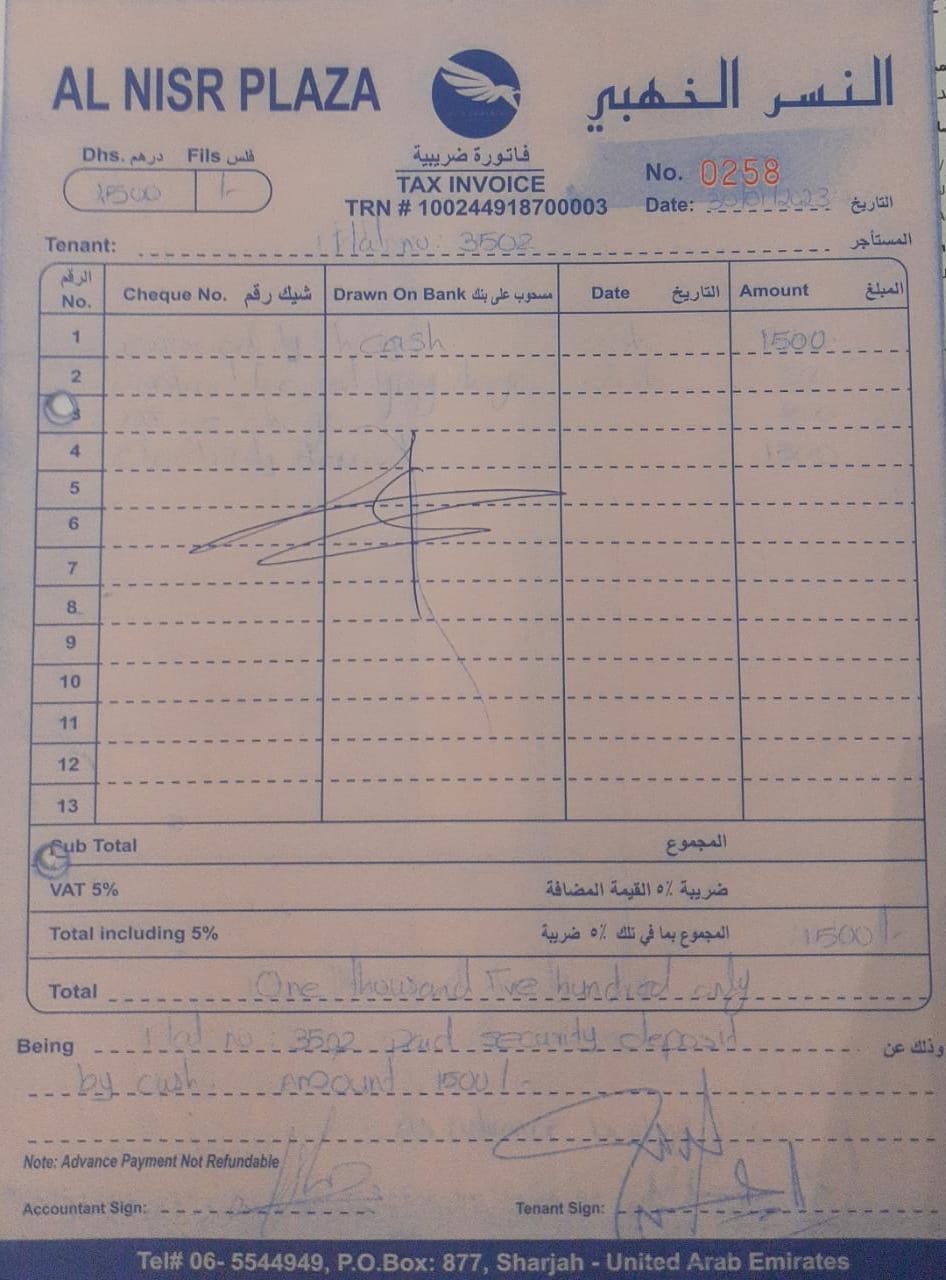 AL NISR PLAZA
النسر الخهبي
Dhs. درهم Fils فلس
1500 /-
فاتورة ضريبية
TAX INVOICE
TRN # 100244918700003
No. 0258
Date: 30/01/2023 التاريخ
Tenant: Flat no: 3502 المستأجر
الرقم No. Cheque No. شيك رقم Drawn On Bank مسحوب على بنك Date التاريخ Amount المبلغ
1 cash 1500
2
3
4
5
6
7
8
9
10
11
12
13
Sub Total المجموع
VAT 5% ضريبة ٥٪ القيمة المضافة
Total including 5% المجموع بما في تلك ٥٪ ضريبة 1500/-
Total One thousand Five hundred only
Being Flat no: 3502 paid security deposit وذلك عن
by cash. Amount 1500/-
Note: Advance Payment Not Refundable
Accountant Sign:
Tenant Sign:
Tel# 06- 5544949, P.O.Box: 877, Sharjah - United Arab Emirates